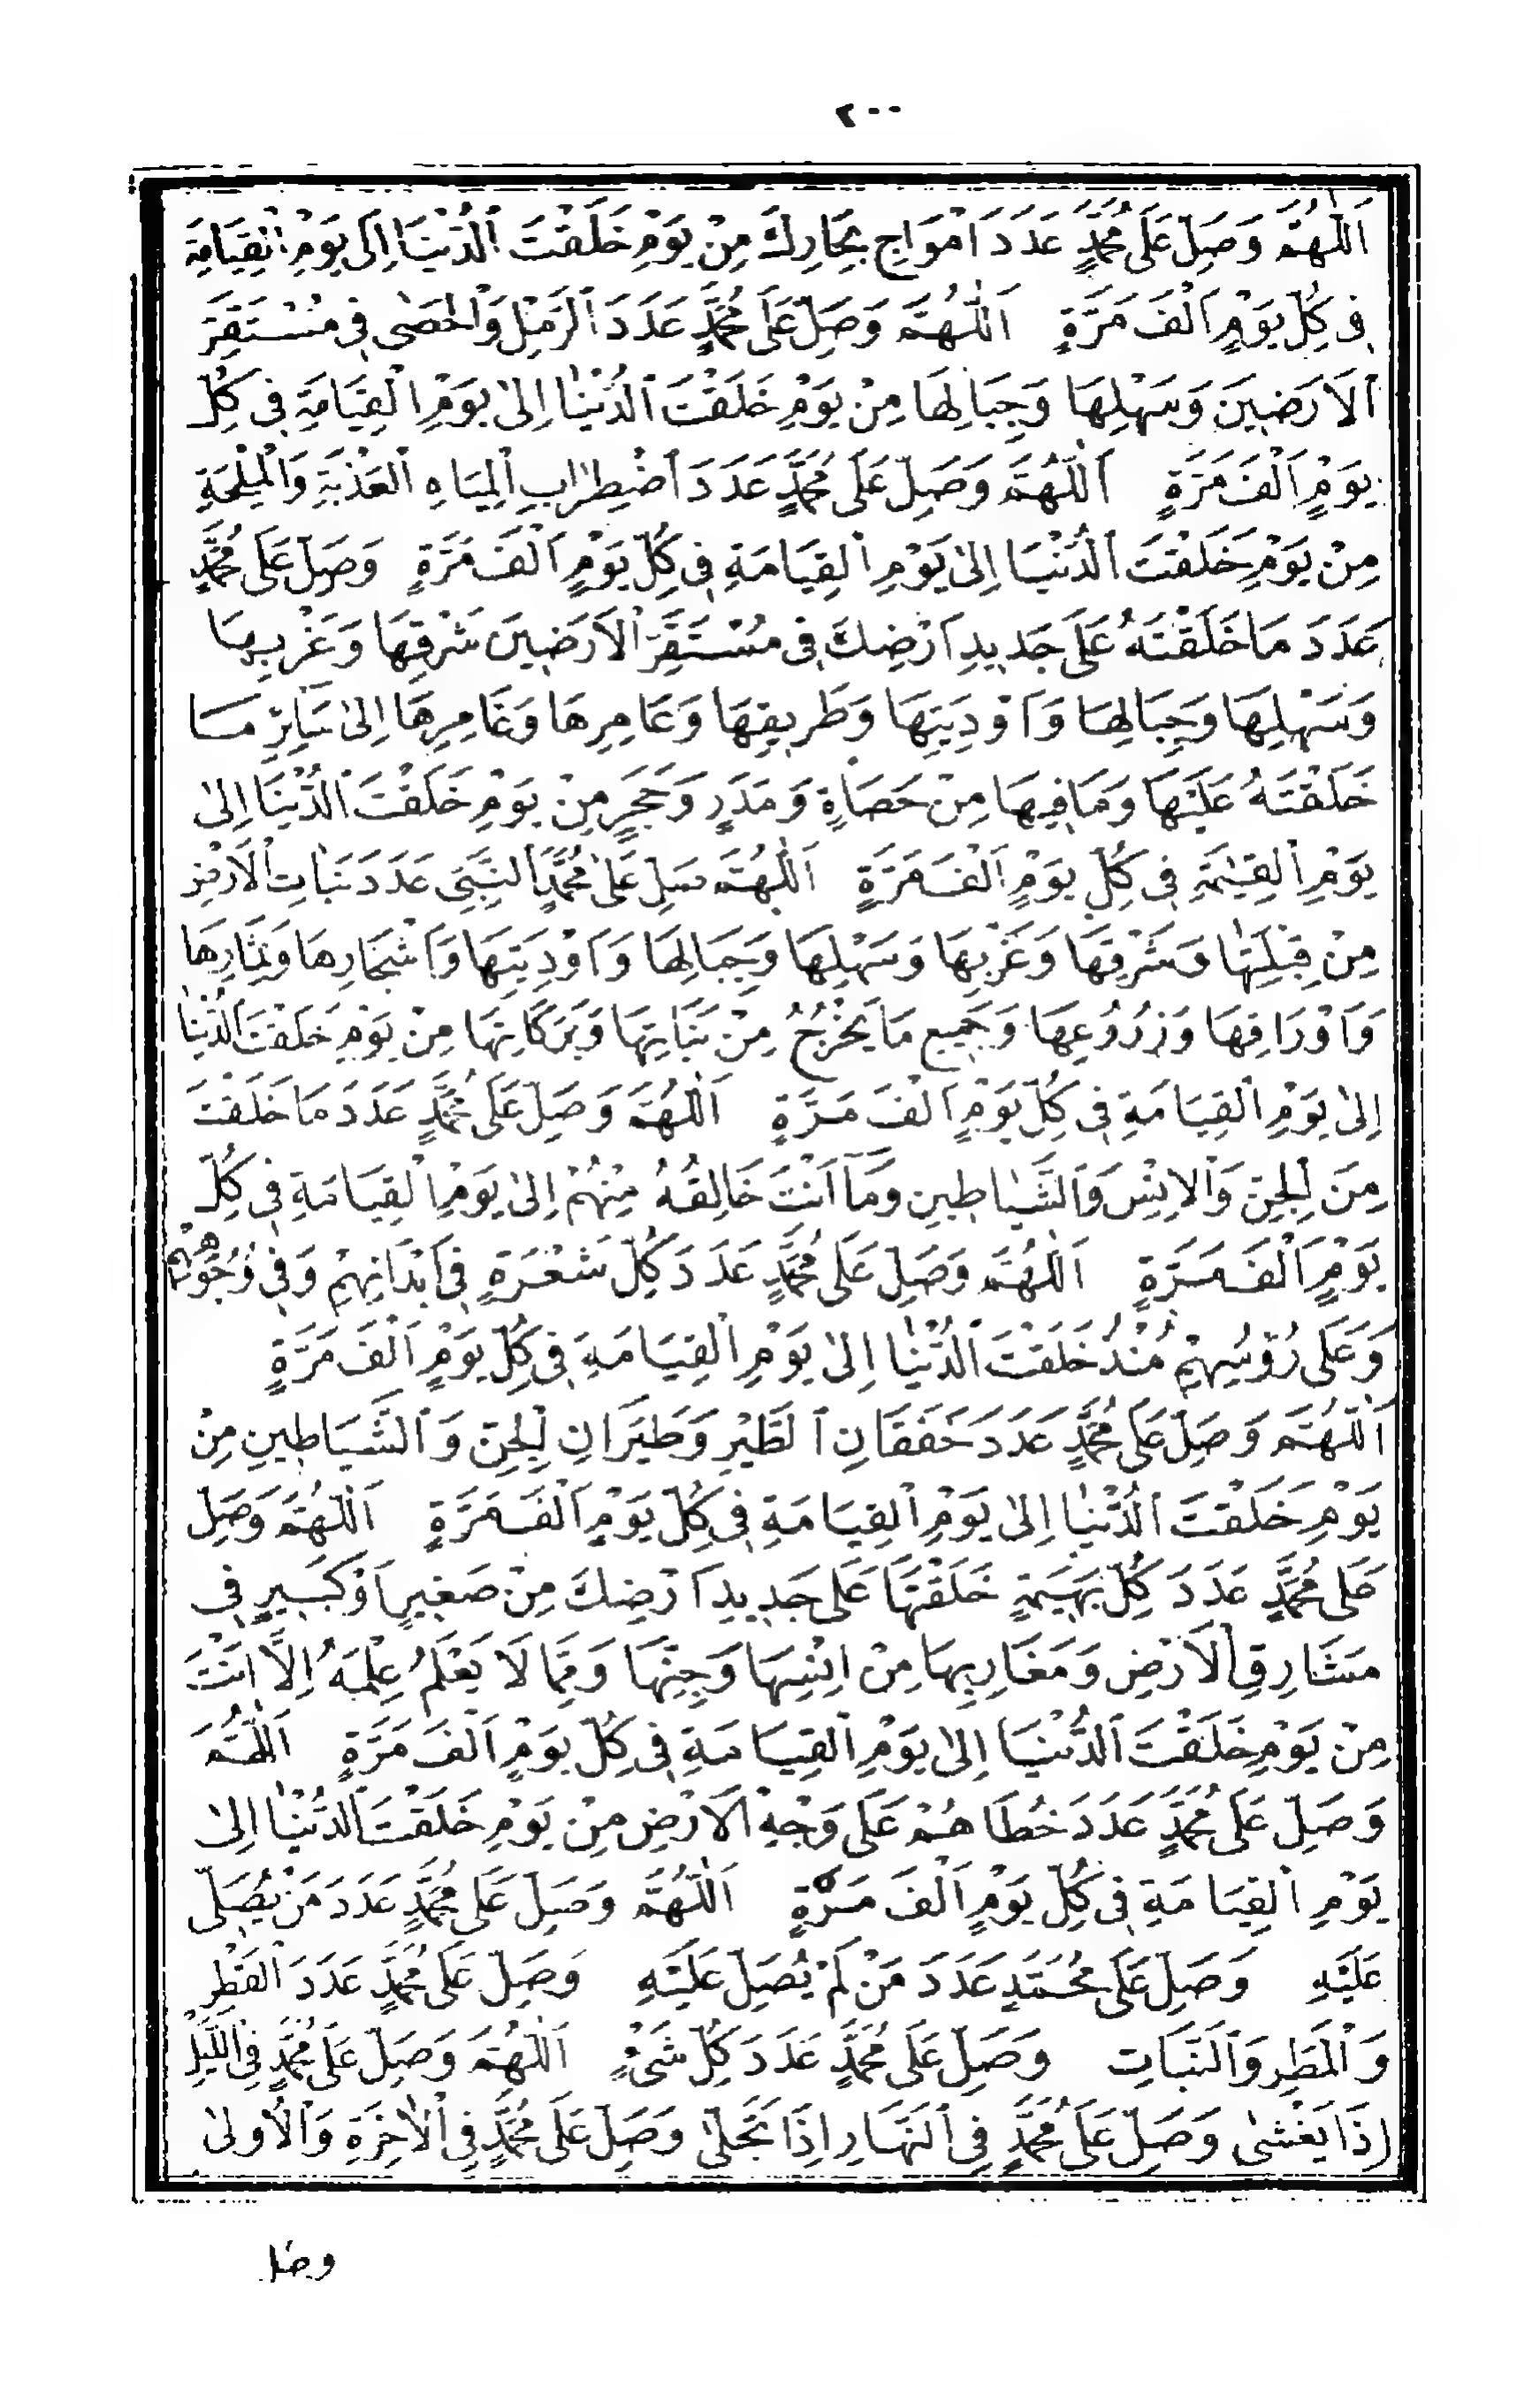 ٢٠٠
اَللّٰهُمَّ وَصَلِّ عَلَى مُحَمَّدٍ عَدَدَ اَمْوَاجِ بِحَارِكَ مِنْ يَوْمِ خَلَقْتَ ٱلدُّنْيَا اِلَى يَوْمِ ٱلْقِيَامَةِ
فِى كُلِّ يَوْمٍ اَلْفَ مَرَّةٍ اَللّٰهُمَّ وَصَلِّ عَلَى مُحَمَّدٍ عَدَدَ ٱلرَّمْلِ وَٱلْحَصٰى فِى مُسْتَقَرِّ
ٱلْاَرَضِينَ وَسَهْلِهَا وَجِبَالِهَا مِنْ يَوْمِ خَلَقْتَ ٱلدُّنْيٰا اِلىٰ يَوْمِ ٱلْقِيَامَةِ فِى كُلِّ
يَوْمٍ اَلْفَ مَرَّةٍ اَللّٰهُمَّ وَصَلِّ عَلَى مُحَمَّدٍ عَدَدَ ٱضْطِرٰابِ ٱلْمِيَاهِ ٱلْعَذْبَةِ وَٱلْمِلْحَةِ
مِنْ يَوْمِ خَلَقْتَ ٱلدُّنْيَا اِلىٰ يَوْمِ ٱلْقِيَامَةِ فِى كُلِّ يَوْمٍ اَلْفَ مَرَّةٍ وَصَلِّ عَلَى مُحَمَّدٍ
عَدَدَ مَا خَلَقْتَهُ عَلَى جَدِيدِ اَرْضِكَ فِى مُسْتَقَرِّ ٱلْاَرَضِينَ شَرْقِهَا وَغَرْبِهَا
وَسَهْلِهَا وَجِبَالِهَا وَاَوْدِيَتِهَا وَطَرِيقِهَا وَعَامِرِهَا وَغَامِرِهَا اِلىٰ سَايِرِ مَا
خَلَقْتَهُ عَلَيْهَا وَمَا فِيهَا مِنْ حَصَاةٍ وَمَدَرٍ وَحَجَرٍ مِنْ يَوْمِ خَلَقْتَ ٱلدُّنْيَا اِلىٰ
يَوْمِ ٱلْقِيٰمَةِ فِى كُلِّ يَوْمٍ اَلْفَ مَرَّةٍ اَللّٰهُمَّ صَلِّ عَلىٰ مُحَمَّدٍ ٱلنَّبِيِّ عَدَدَ نَبٰاتِ ٱلْاَرْضِ
مِنْ قِبْلَتِهٰا وَشَرْقِهَا وَغَرْبِهَا وَسَهْلِهَا وَجِبَالِهَا وَاَوْدِيَتِهَا وَاَشْجَارِهَا وَثِمَارِهَا
وَاَوْرَاقِهَا وَزُرُوعِهَا وَجَمِيعِ مَا يَخْرُجُ مِنْ نَبَاتِهَا وَبَرَكَاتِهَا مِنْ يَوْمِ خَلَقْتَ ٱلدُّنْيٰا
اِلىٰ يَوْمِ ٱلْقِيَامَةِ فِى كُلِّ يَوْمٍ اَلْفَ مَرَّةٍ اَللّٰهُمَّ وَصَلِّ عَلَى مُحَمَّدٍ عَدَدَ مَا خَلَقْتَ
مِنَ ٱلْجِنِّ وَٱلْاِنْسِ وَٱلشَّيٰاطِينِ وَمَآ اَنْتَ خَالِقُهُ مِنْهُمْ اِلىٰ يَوْمِ ٱلْقِيَامَةِ فِى كُلِّ
يَوْمٍ اَلْفَ مَرَّةٍ اَللّٰهُمَّ وَصَلِّ عَلَى مُحَمَّدٍ عَدَدَ كُلِّ شَعْرَةٍ فِى اَبْدَانِهِمْ وَفِى وُجُوهِهِمْ
وَعَلَى رُؤُسِهِمْ مُنْذُ خَلَقْتَ ٱلدُّنْيٰا اِلىٰ يَوْمِ ٱلْقِيَامَةِ فِى كُلِّ يَوْمٍ اَلْفَ مَرَّةٍ
اَللّٰهُمَّ وَصَلِّ عَلَى مُحَمَّدٍ عَدَدَ خَفَقَانِ ٱلطَّيْرِ وَطَيَرَانِ ٱلْجِنِّ وَٱلشَّيَاطِينِ مِنْ
يَوْمِ خَلَقْتَ ٱلدُّنْيٰا اِلىٰ يَوْمِ ٱلْقِيَامَةِ فِى كُلِّ يَوْمٍ اَلْفَ مَرَّةٍ اَللّٰهُمَّ وَصَلِّ
عَلَى مُحَمَّدٍ عَدَدَ كُلِّ بَهِيمَةٍ خَلَقْتَهَا عَلَى جَدِيدِ اَرْضِكَ مِنْ صَغِيرٍ اَوْ كَبِيرٍ فِى
مَشَارِقِ ٱلْاَرْضِ وَمَغَارِبِهَا مِنْ اِنْسِهَا وَجِنِّهَا وَمِمَّا لَا يَعْلَمُ عِلْمَهُ اِلَّا اَنْتَ
مِنْ يَوْمِ خَلَقْتَ ٱلدُّنْيَا اِلىٰ يَوْمِ ٱلْقِيَامَةِ فِى كُلِّ يَوْمٍ اَلْفَ مَرَّةٍ اَللّٰهُمَّ
وَصَلِّ عَلَى مُحَمَّدٍ عَدَدَ خُطَاهُمْ عَلَى وَجْهِ ٱلْاَرْضِ مِنْ يَوْمِ خَلَقْتَ ٱلدُّنْيٰا اِلىٰ
يَوْمِ ٱلْقِيَامَةِ فِى كُلِّ يَوْمٍ اَلْفَ مَرَّةٍ اَللّٰهُمَّ وَصَلِّ عَلَى مُحَمَّدٍ عَدَدَ مَنْ يُصَلِّى
عَلَيْهِ وَصَلِّ عَلَى مُحَمَّدٍ عَدَدَ مَنْ لَمْ يُصَلِّ عَلَيْهِ وَصَلِّ عَلَى مُحَمَّدٍ عَدَدَ ٱلْقَطْرِ
وَٱلْمَطَرِ وَٱلنَّبَاتِ وَصَلِّ عَلَى مُحَمَّدٍ عَدَدَ كُلِّ شَىْءٍ اَللّٰهُمَّ وَصَلِّ عَلَى مُحَمَّدٍ فِى ٱللَّيْلِ
اِذَا يَغْشىٰ وَصَلِّ عَلَى مُحَمَّدٍ فِى ٱلنَّهَارِ اِذَا تَجَلىّٰ وَصَلِّ عَلَى مُحَمَّدٍ فِى ٱلْاٰخِرَةِ وَٱلْاُولىٰ
وصل